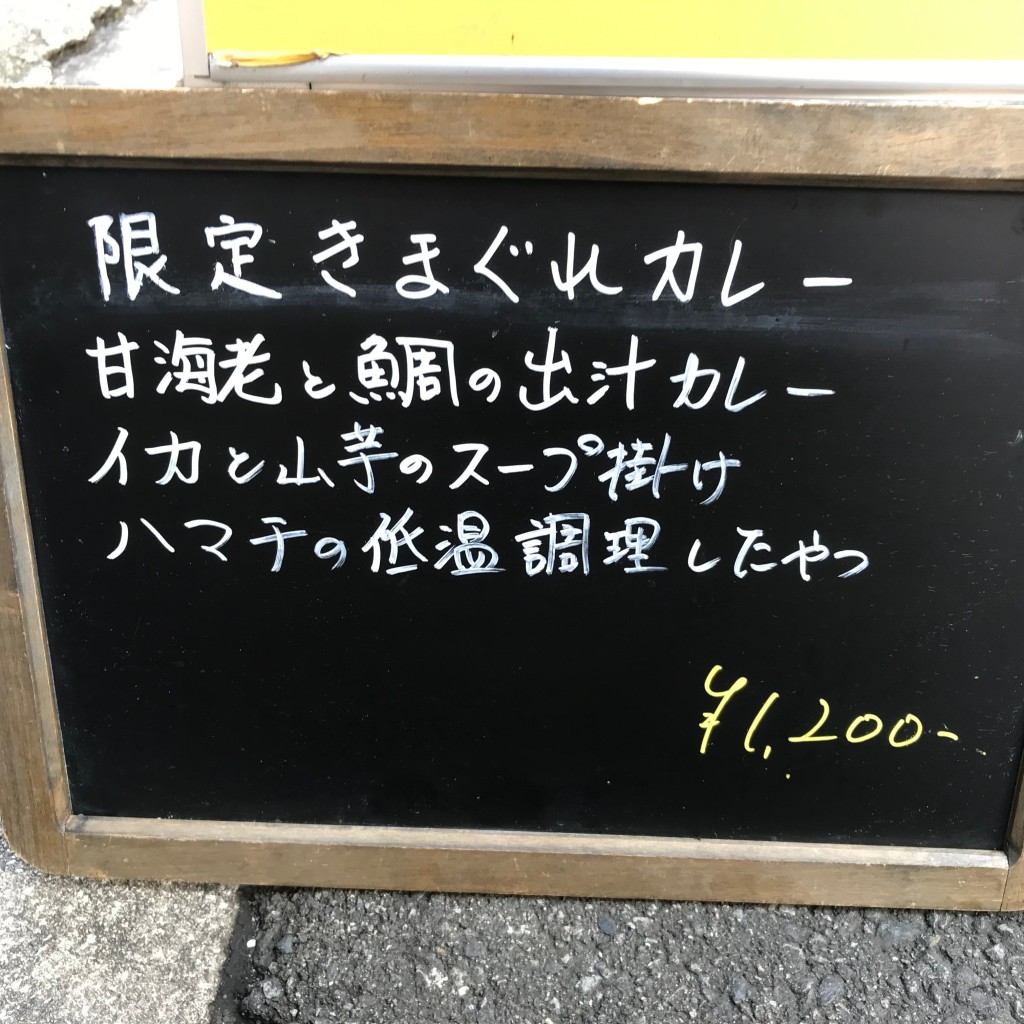 限定きまぐれカレー
甘海老と鯛の出汁カレー
イカと山芋のスープ掛け
ハマチの低温調理したやつ
¥1,200-